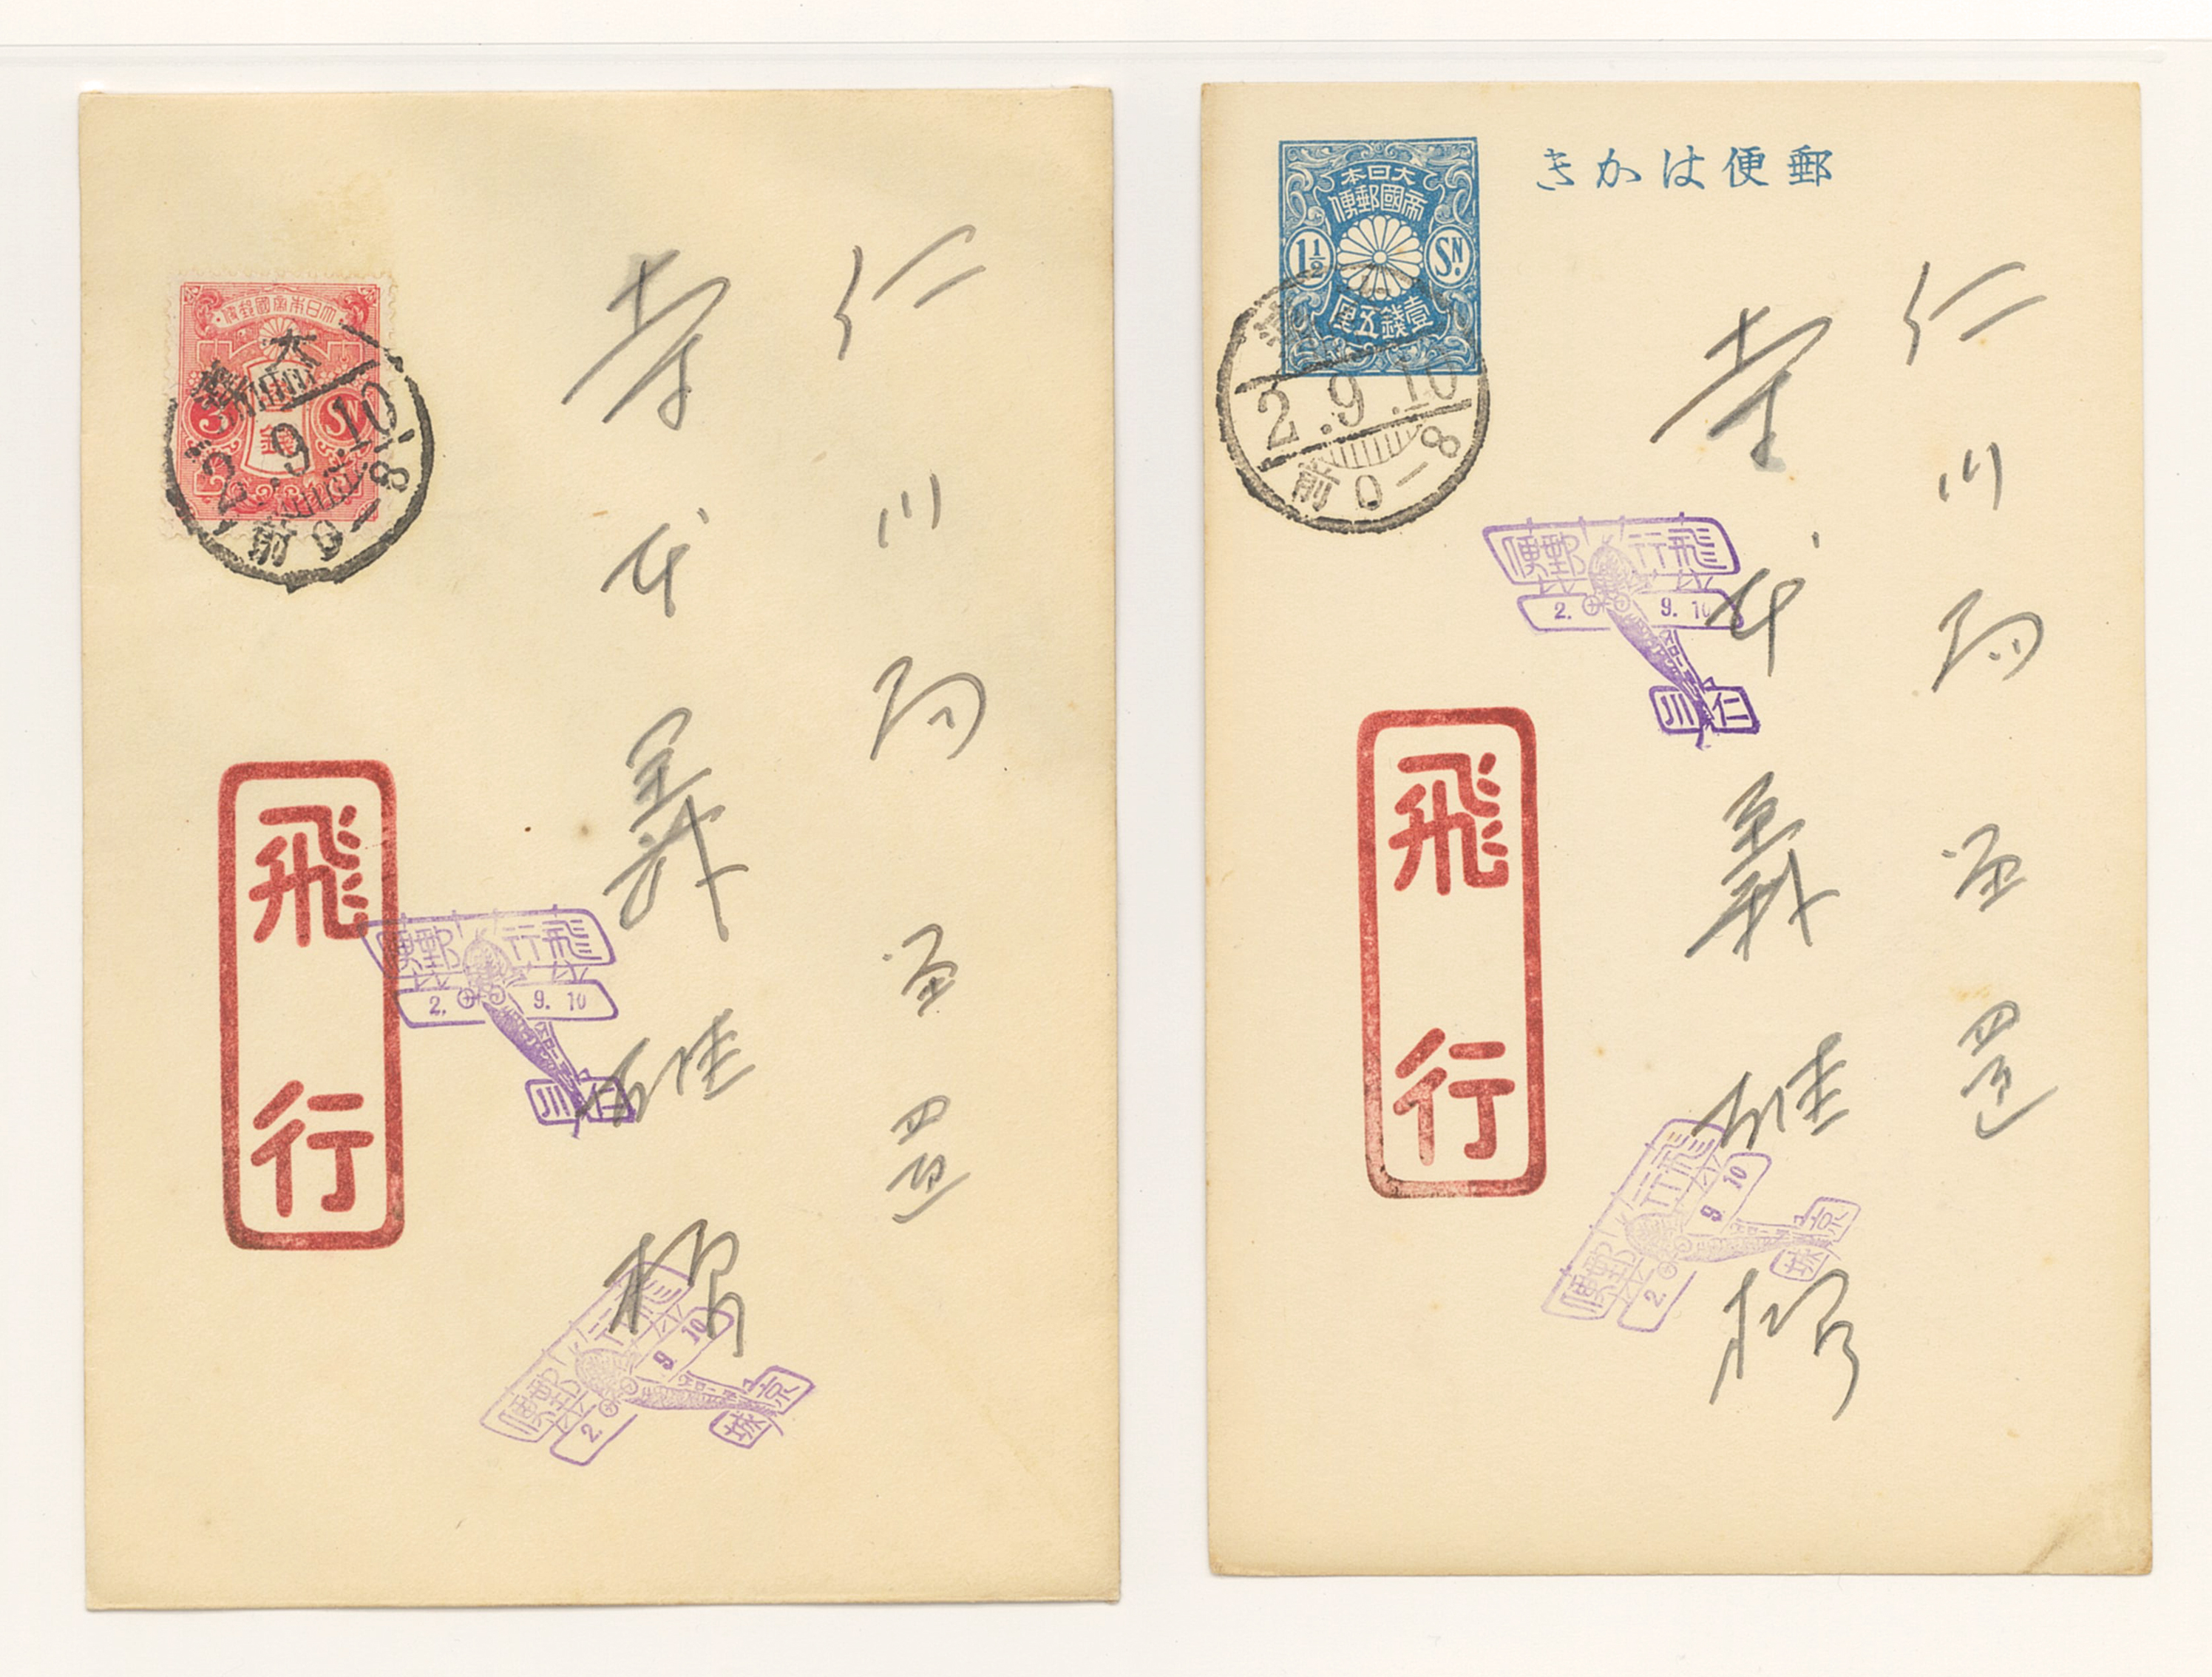 大日本帝國郵便
3 SN
大
2.9.10
前 6-8
仁川局留置
寺本義雄様
飛行
飛行郵便
2. 9. 10
仁川
飛行郵便
2. 9 10
京城
郵便はかき
大日本
帝國郵便
1½ SN.
壹錢五厘
2.9.10
前 0-8
仁川局留置
寺本義雄様
飛行郵便
2. 9. 10
仁川
飛行
飛行郵便
2. 9 10
京城